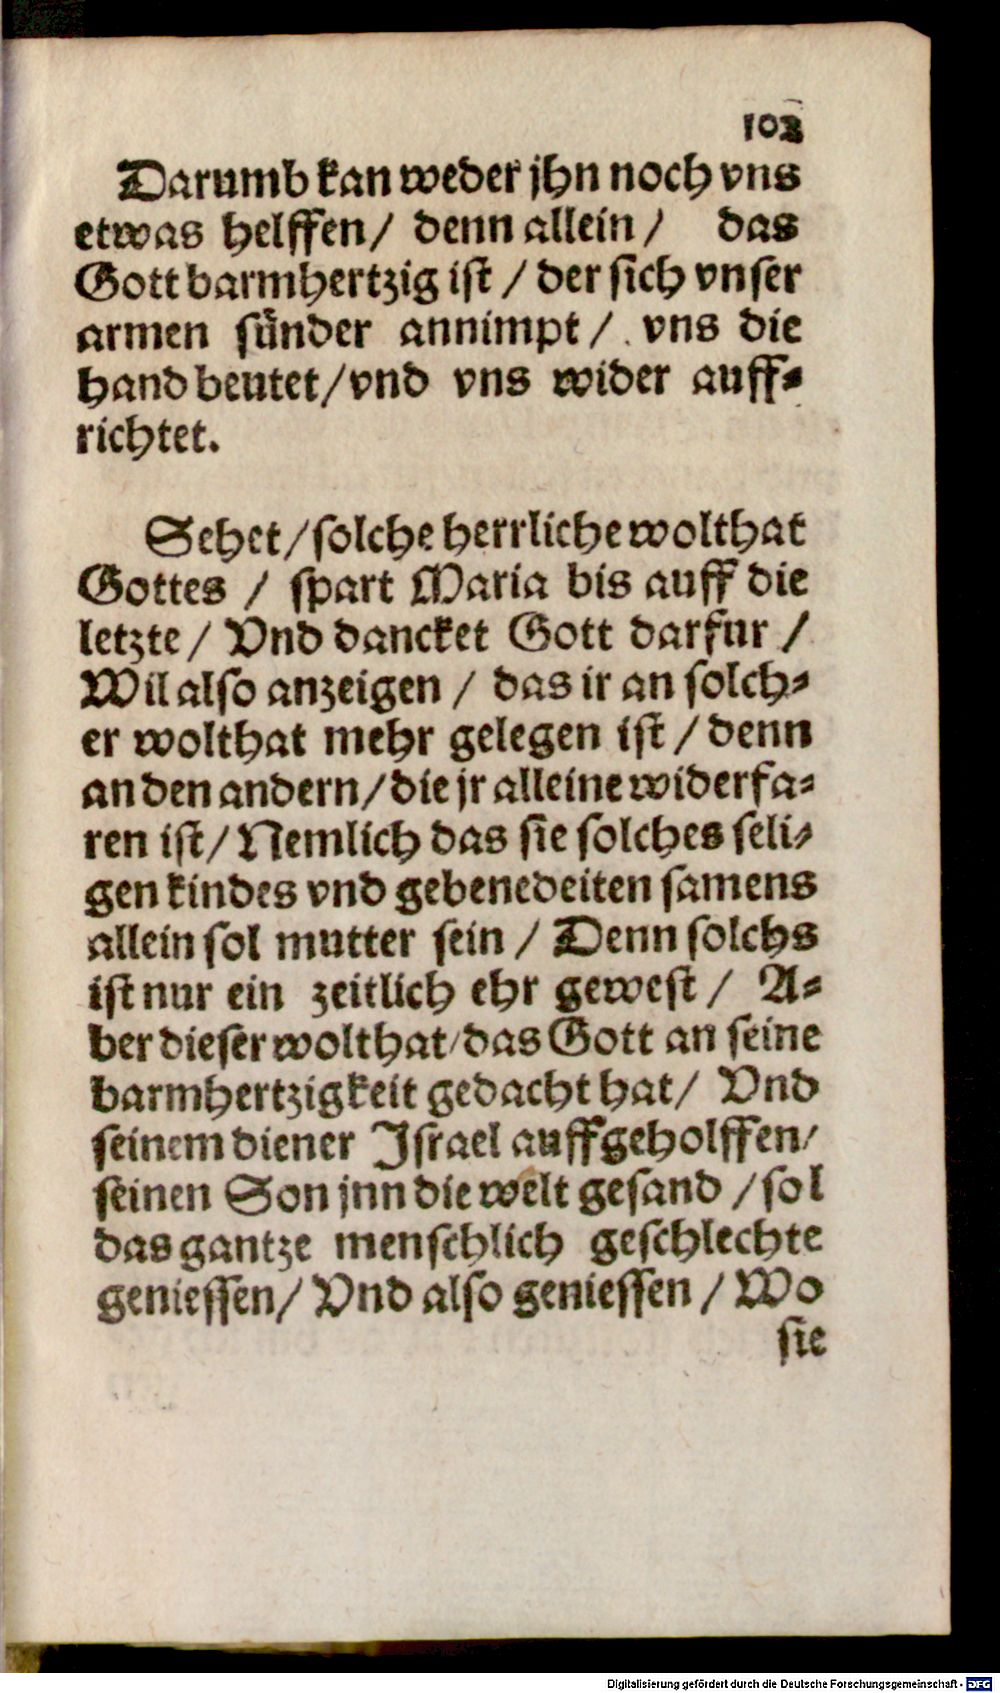 102
Darumb kan weder jhn noch vns
etwas helffen / denn allein / das
Gott barmhertzig ist / der sich vnser
armen sünder annimpt / vns die
hand beutet / vnd vns wider auff-
richtet.
Sehet / solche herrliche wolthat
Gottes / spart Maria bis auff die
letzte / Vnd dancket Gott darfur /
Wil also anzeigen / das ir an solch-
er wolthat mehr gelegen ist / denn
an den andern / die jr alleine widerfa-
ren ist / Nemlich das sie solches seli-
gen kindes vnd gebenedeiten samens
allein sol mutter sein / Denn solchs
ist nur ein zeitlich ehr gewest / A-
ber dieser wolthat / das Gott an seine
barmhertzigkeit gedacht hat / Vnd
seinem diener Israel auffgeholffen /
seinen Son jnn die welt gesand / sol
das gantze menschlich geschlechte
geniessen / Vnd also geniessen / Wo
sie
Digitalisierung gefördert durch die Deutsche Forschungsgemeinschaft - DFG